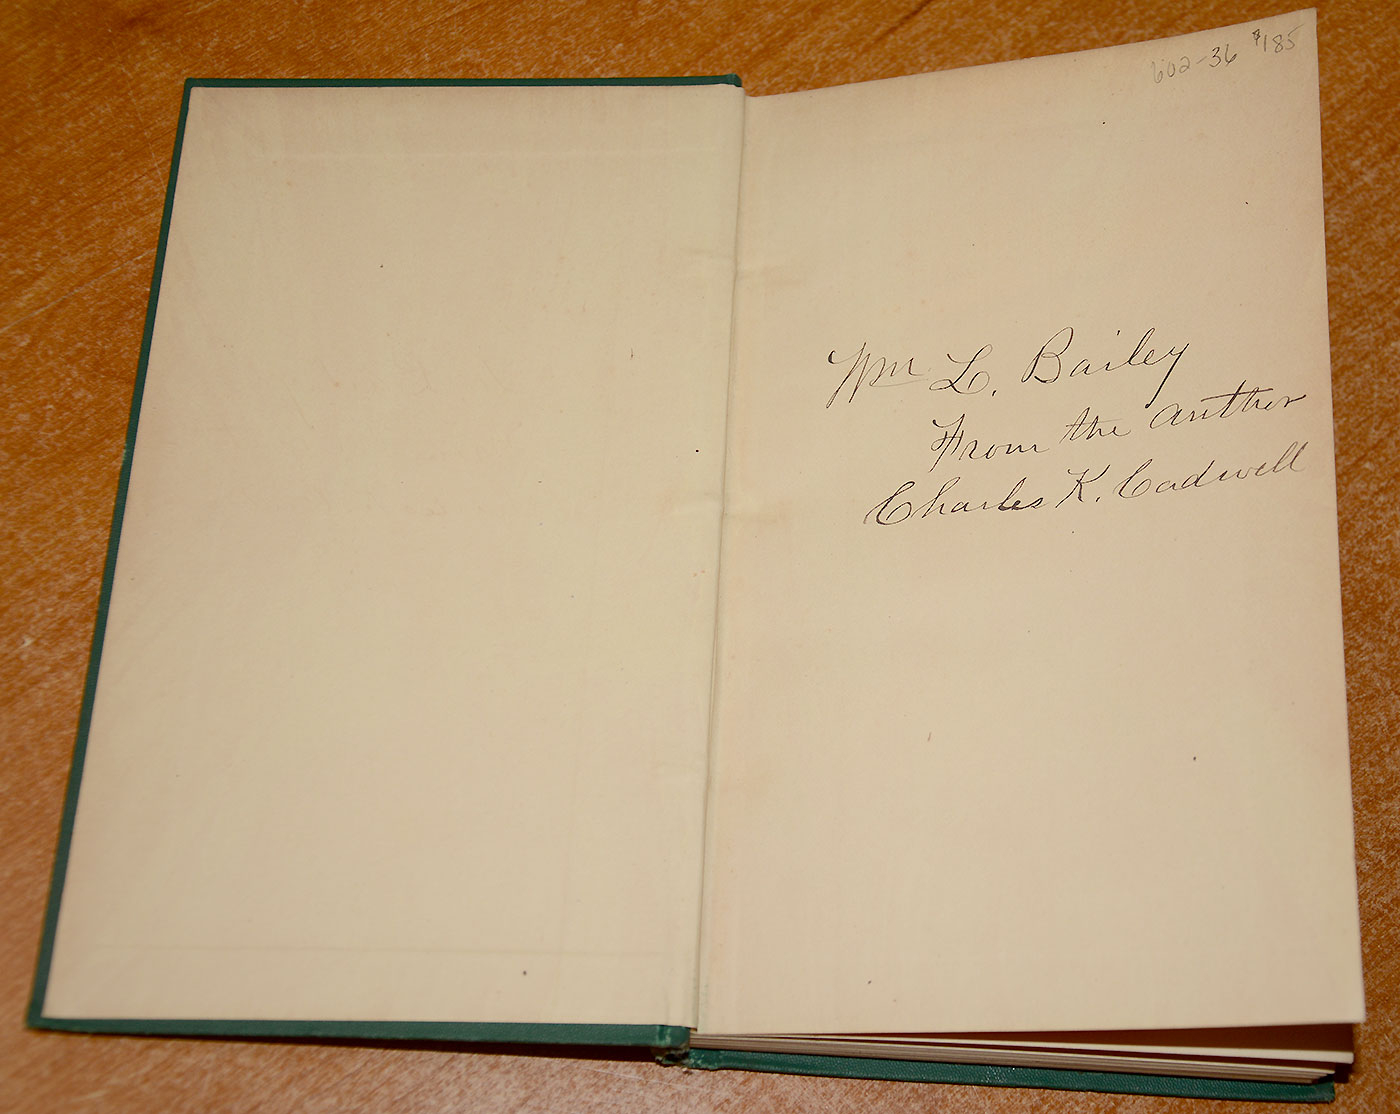 602-36 $185
Wm L. Bailey
From the author
Charles K. Cadwell